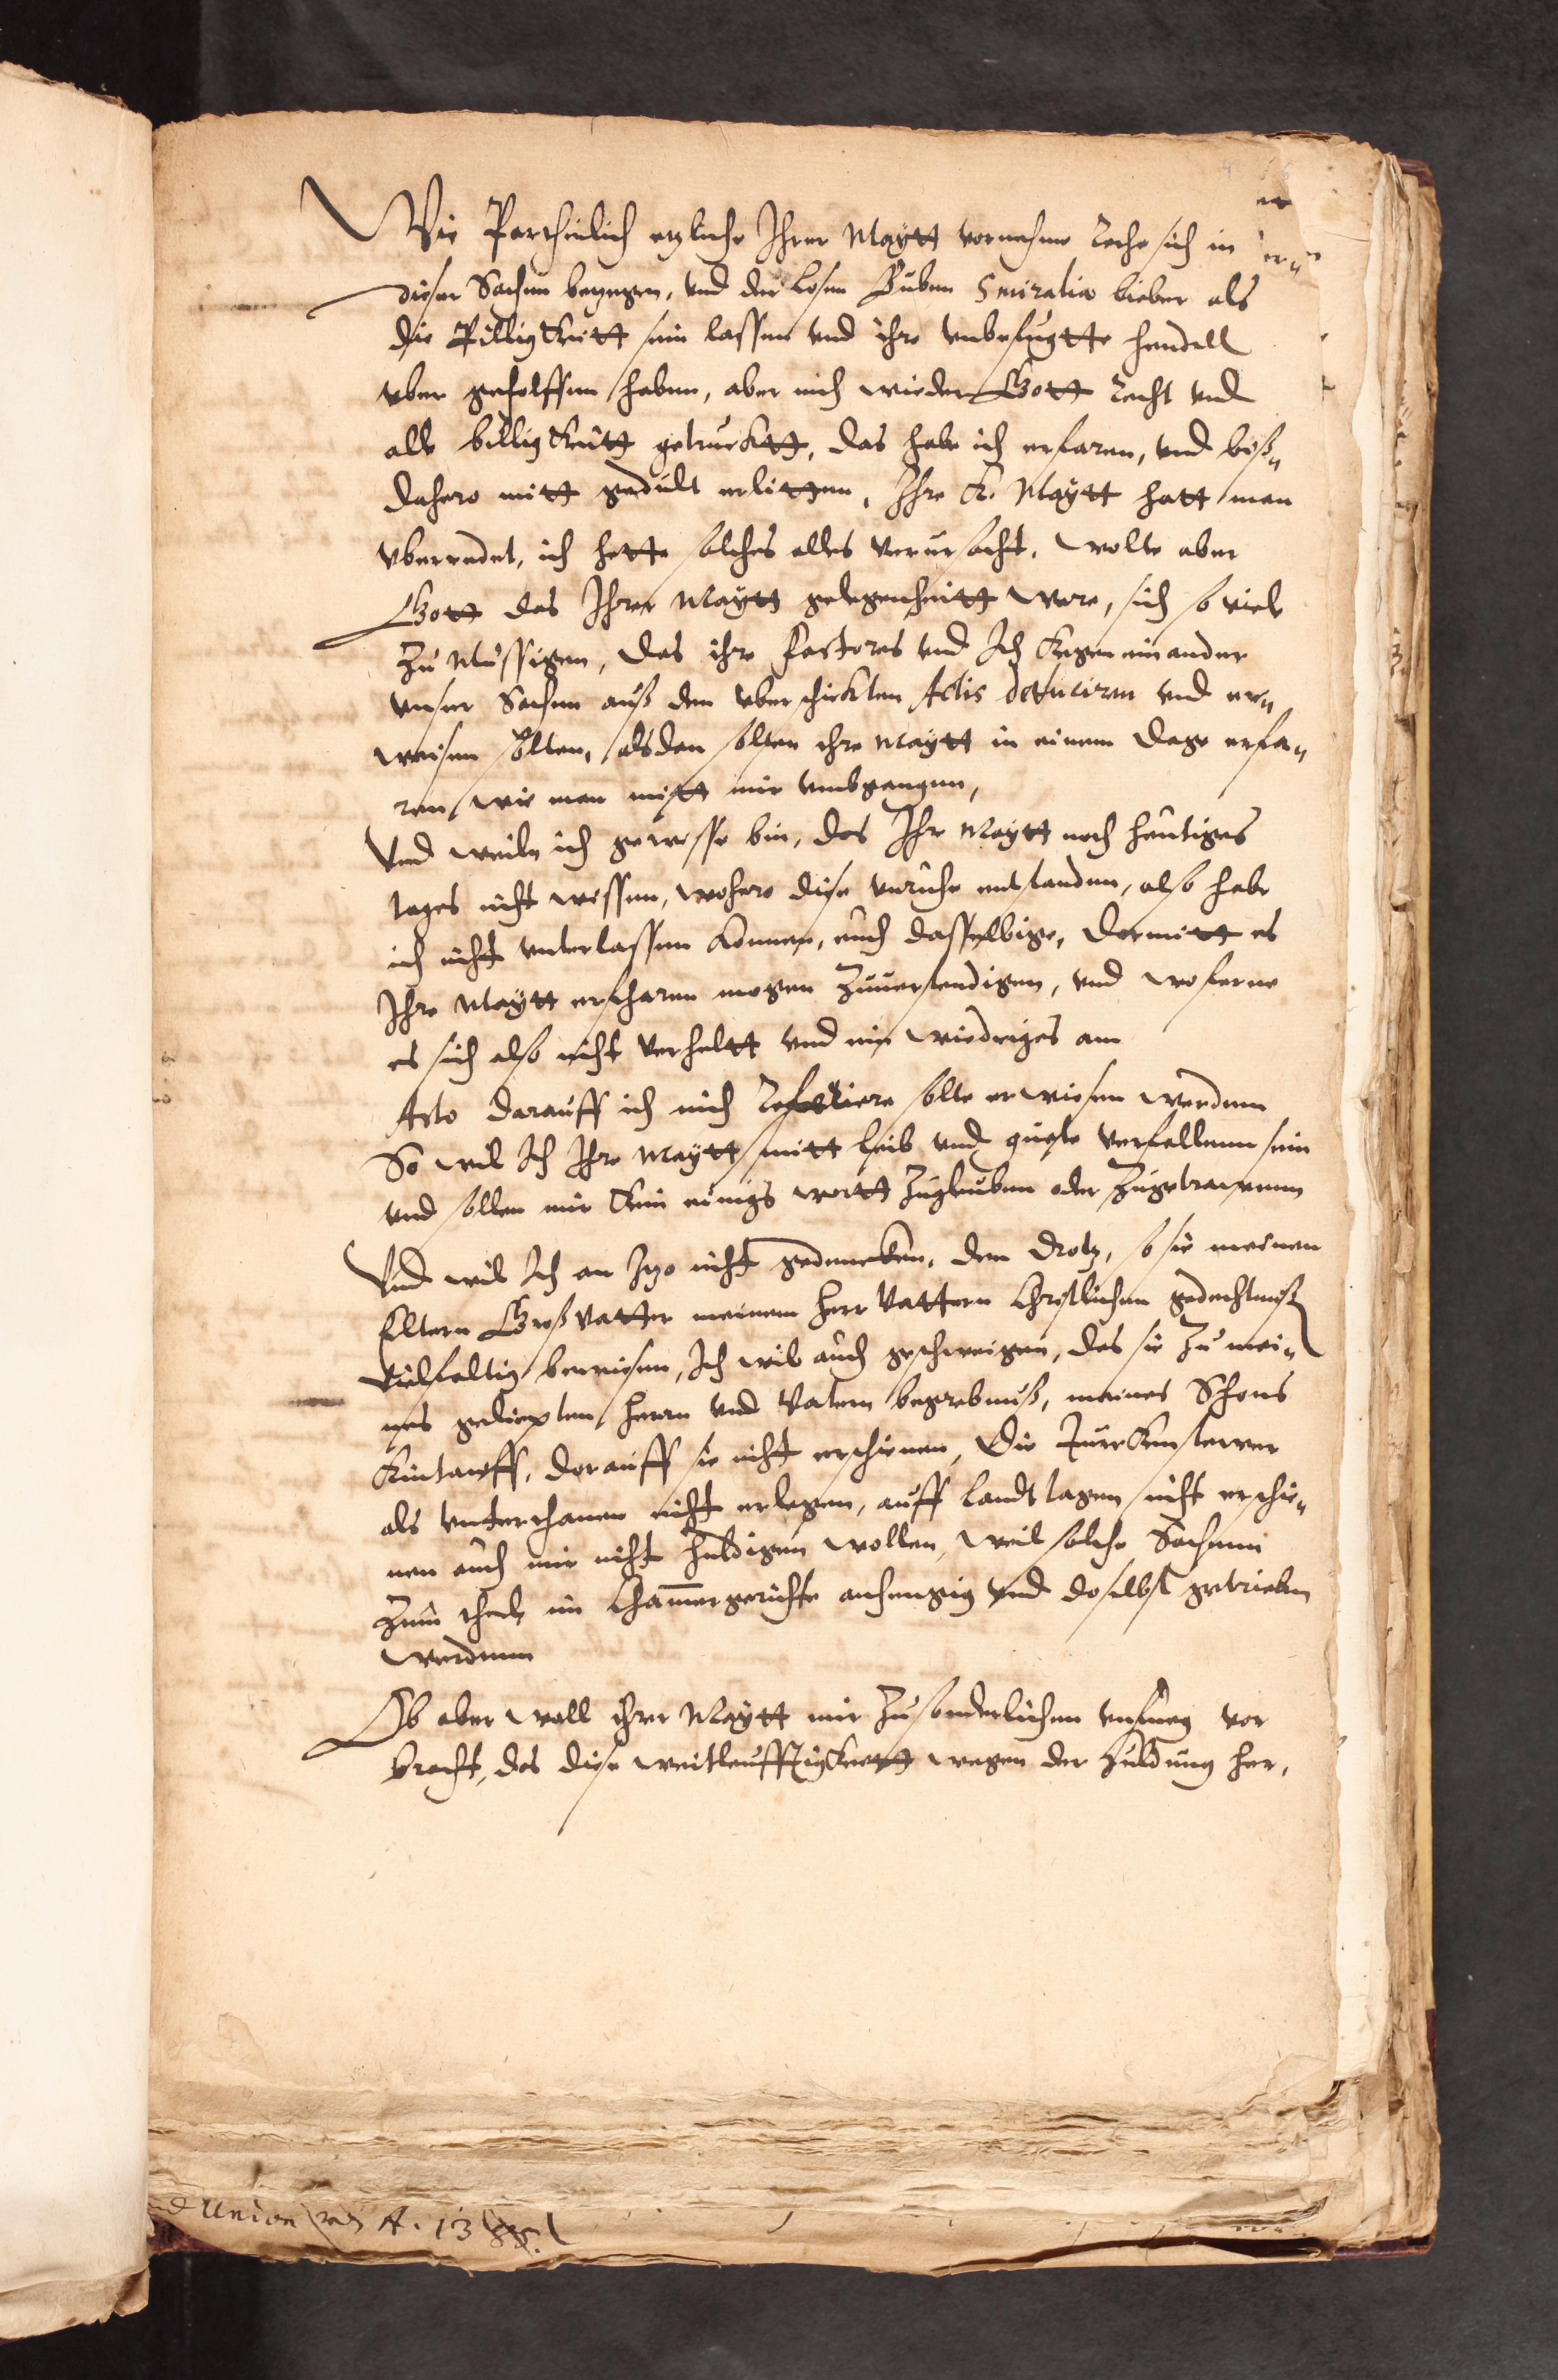 Wie Partheilich etzliche Ihrer Maÿtt vornehme Rethe sich in
dieser Sachen bezeigen, vnd der losen Buben Smiralia lieber als
die Pilligkeitt sein lassen vnd ihre vnbefugtte hendell
vber geholffen haben, aber mich wieder Gott Recht vnd
alle billigkeitt getrucktt, das habe ich erfaren, vnd biß„
dahero mitt gedult erlitten, Ihre K. Maÿtt hatt man
vberredet, ich hette solches alles verursacht, wolte aber
Gott das Ihrer Maÿtt gelegenheitt were, sich so viele
Zu Mussigen, das ihre factores vnd Ich kegen einander
vnser Sachen auß den vberschickten Actis deduciren vnd er„
weisen solten, alsdan solten ihre Maÿtt in einem dage erfa„
ren wie man mitt mir vmbgangen,
Vnd weile ich gewisse bin, das Ihr Maÿtt noch heutiges
tages nicht wissen, wohero diese vnruhe entstanden, also habe
ich nicht vnterlassen konnen, euch dasselbige, darmitt es
Ihre Maÿtt erfharen mogen Zuuerstendigen, vnd woferne
es sich also nicht verheltt vnd ein wiedriges am
Acto darauff ich mich referiere solte erwiesen werdenn
So wil Ich Ihr Maÿtt mitt leib vnd guete verfallenn sein
vnd sollen mir kein einigs wortt Zugleuben oder Zugetrauwenn
Vnd wil Ich an Itzo nicht gedencken, den drotz, so sie meinen
Eltern Großvatter meinem herr Vattern Christlichen gedechtniß
vielfaltig bewiesen, Ich wil auch geschweigen, das sie Zu mei„
nes geliepten herrn vnd Vatern begrebnuß, meines Sohns
kintauff, darauff sie nicht erschienen, Die Turckensteuer
als vnterthanen nicht erlegen, auff landttagen nicht erschie„
nen auch mir nicht huldigen wollen, weil solche Sachenn
Zum theile im Chammergerichte anhengig vnd doselbst getrieben
werdenn
Ob aber woll ihrer Maÿtt mir Zu sonderlichen vnfueg vor
bracht, das diese weitleufftigkeitt wegen der huldung her,
Union A. 13